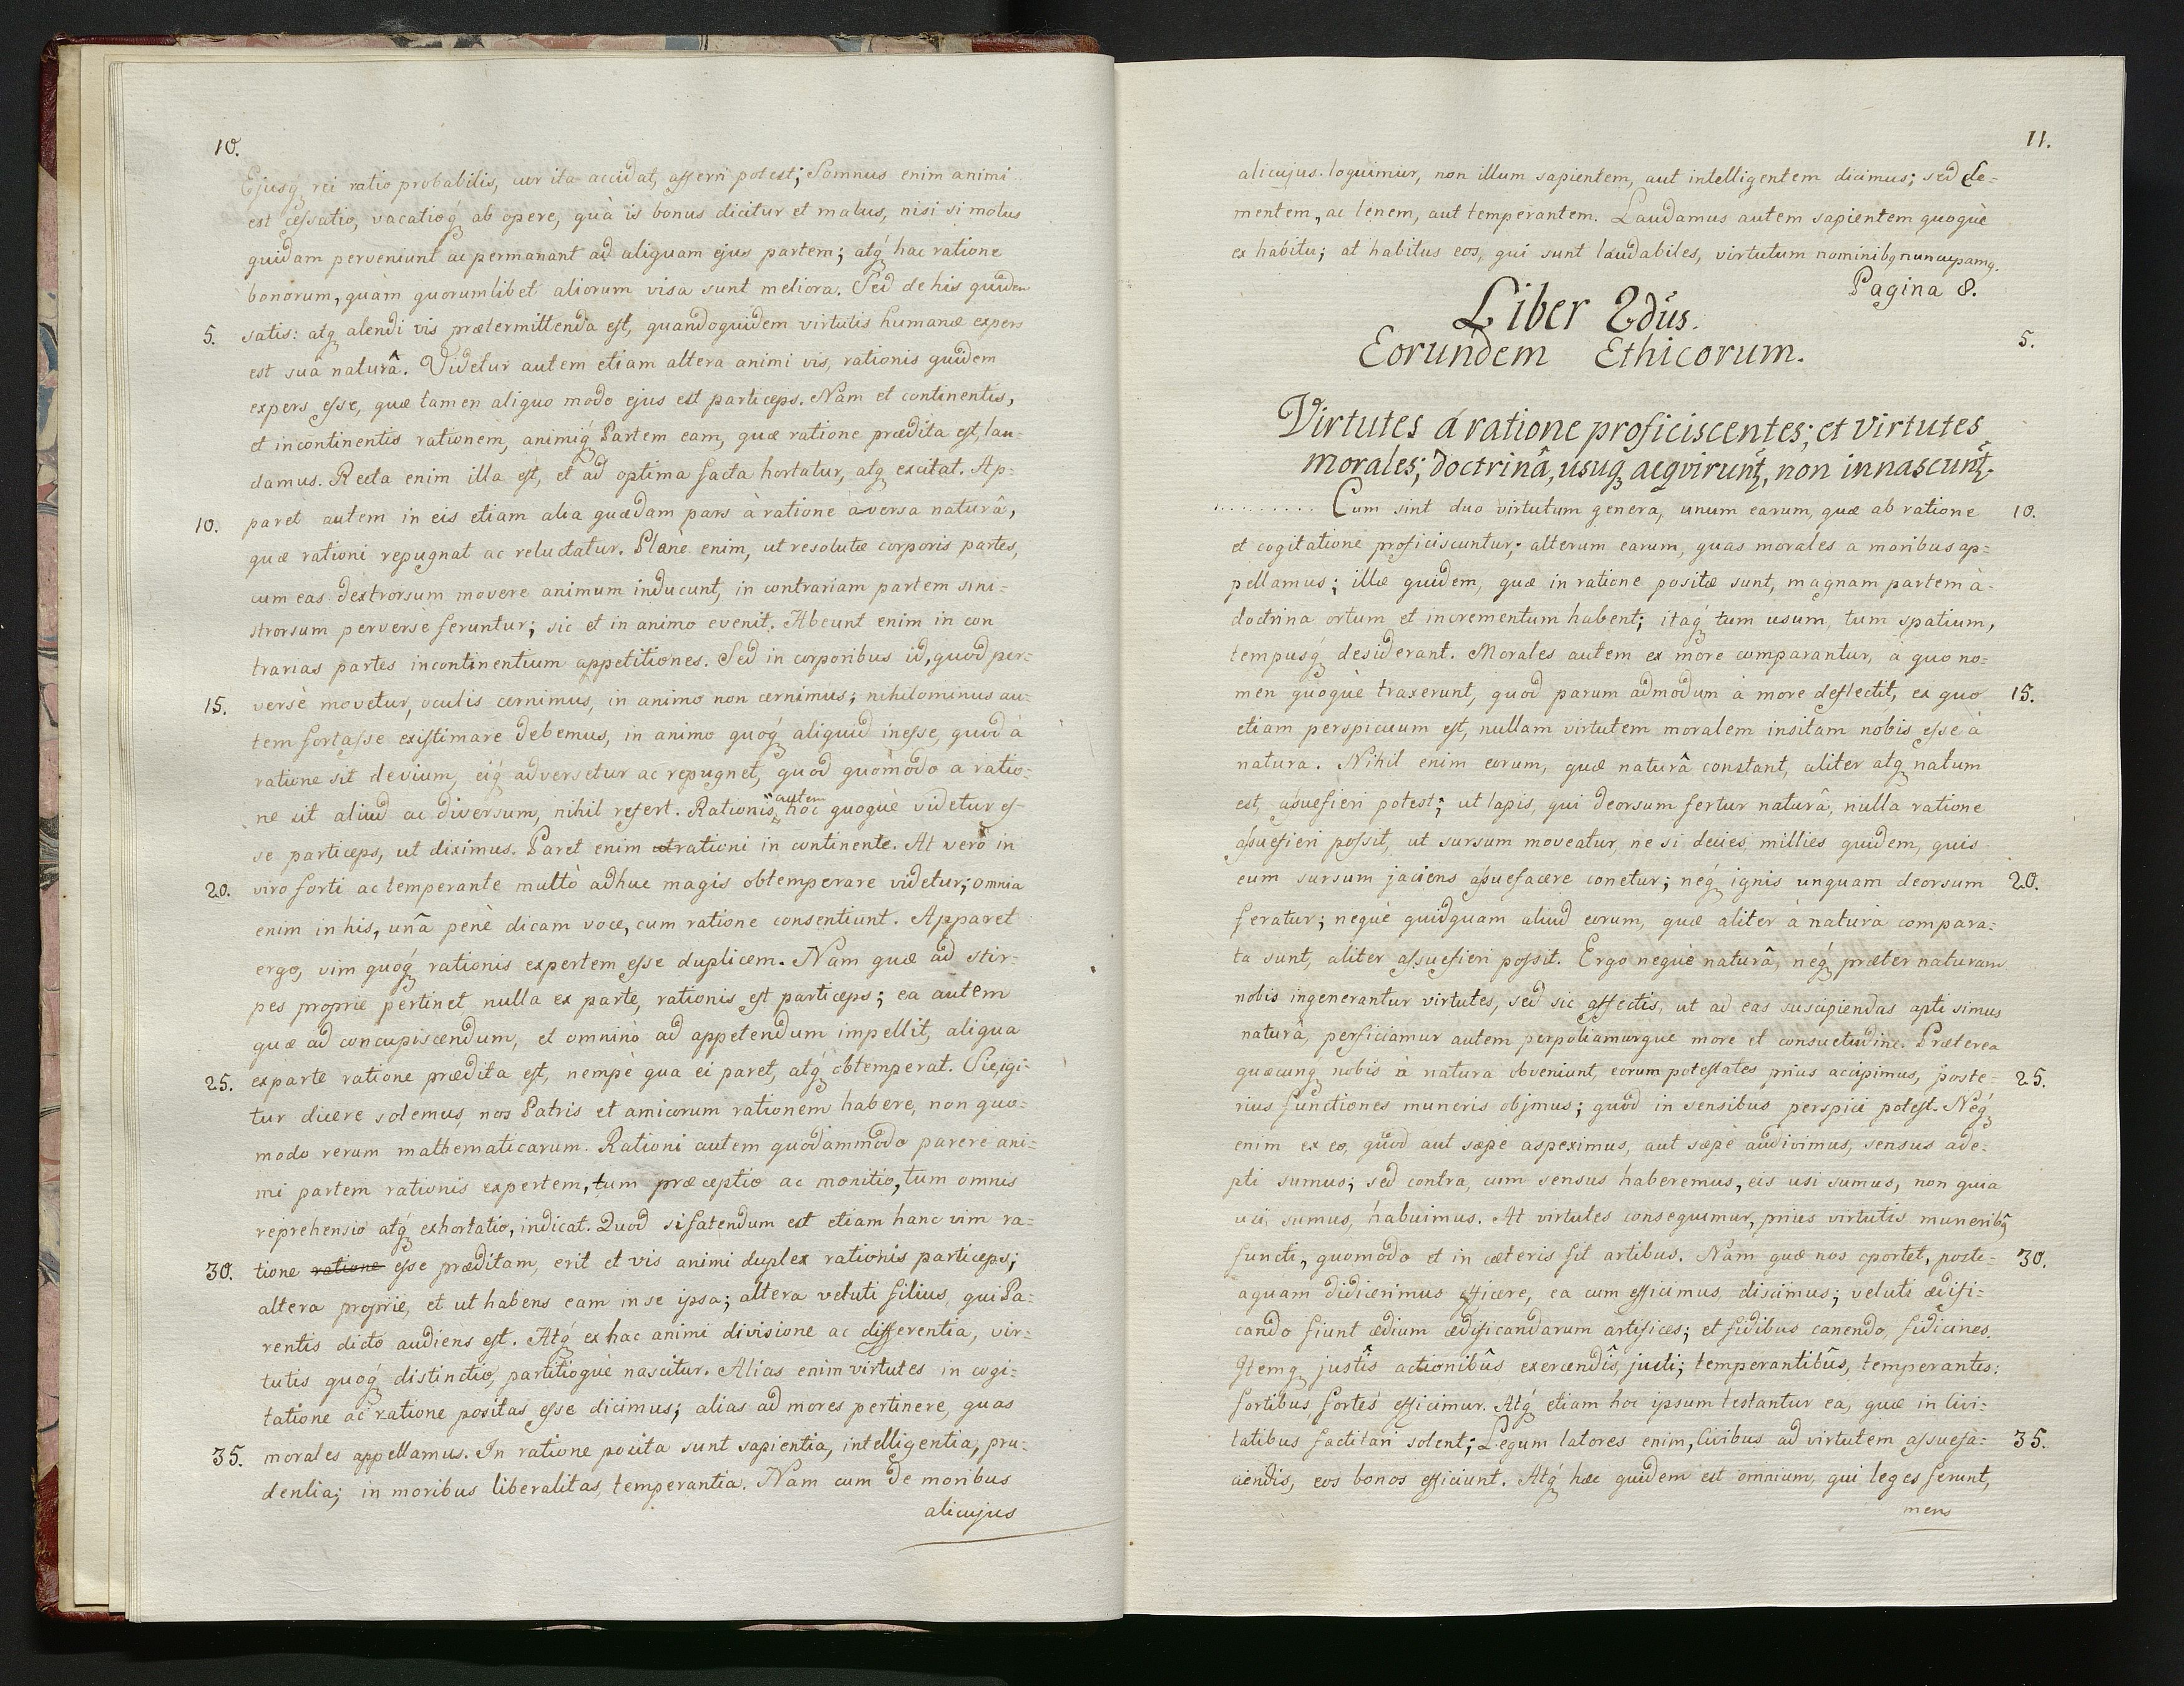 10.
Ejusq́ rei ratio probabilis, cur ita accidat, afferri potest; Somnus enim animi
est cessatio, vacatioq́ ab opere, quà is bonus dicitur et malus, nisi si motus
quidam perveniunt ac permanant ad aliquam ejus partem; atq́ hac ratione
bonorum, quàm quorumlibet aliorum visa sunt meliora. Sed de his quidem
5. satis: atq alendi vis prætermittenda est, quandoquidem virtutis humanæ expers
est sua naturâ. Videtur autem etiam altera animi vis, rationis quidem
expers esse, quæ tamen aliquo modo ejus est particeps. Nam et continentis,
et incontinentis rationem, animiq́ Partem eam, quæ ratione prædita est, lau-
damus. Recta enim illa est, et ad optima facta hortatur, atq excitat. Ap=
10. paret autem in eis etiam alia quædam pars à ratione aversa naturâ,
quæ rationi repugnat ac reluctatur. Planè enim, ut resolutæ corporis partes,
cum eas dextrorsum movere animum inducunt, in contrariam partem sini=
strorsum perversè feruntur; sic et in animo evenit. Abeunt enim in con
trarias partes incontinentium appetitiones. Sed in corporibus id, quod per=
15. versè movetur, oculis cernimus, in animo non cernimus; nihilominus au=
tem fortasse existimare debemus, in animo quoq́ aliquid inesse, quod à
ratione sit devium, eiq́ adversetur ac repugnet, quod quomodo a ratio=
ne sit aliud ac diversum, nihil refert. Rationis autem hoc quoquè videtur es=
se particeps, ut diximus. Paret enim rationi in continente. At verò in
20. viro forti ac temperante multò adhuc magis obtemperare videtur; omnia
enim in his, unâ penè dicam voce, cum ratione consentiunt. Apparet
ergo, vim quoq́ rationis expertem esse duplicem. Nam quæ ad stir=
pes proprie pertinet nulla ex parte, rationis est particeps; ea autem
quæ ad concupiscendum, et omninò ad appetendum impellit, aliqua
25. ex parte ratione prædita est, nempè qua ei paret, atq́ obtemperat. Sic igi=
tur dicere solemus, nos Patris et amicorum rationem habere, non quo=
modo rerum mathematicarum. Rationi autem quodammodo parere ani=
mi partem rationis expertem, tum præceptio ac monitio, tum omnis
reprehensio atq́ exhortatio, indicat. Quod si fatendum est etiam hanc vim ra=
30. tione ratione esse præditam, erit et vis animi duplex rationis particeps;
altera proprie, et ut habens eam in se ipsa; altera veluti filius, qui Pa=
rentis dicto audiens est. Atq́ ex hac animi divisione ac differentia, vir=
tutis quoq́ distinctio, partitioquè nascitur. Alias enim virtutes in cogi=
tatione ac ratione positas esse dicimus; alias ad mores pertinere, quas
35. morales appellamus. In ratione posita sunt sapientia, intelligentia, pru=
dentia; in moribus liberalitas, temperantia. Nam cum de moribus
alicujus
11.
alicujus loquimur, non illum sapientem, aut intelligentem dicimus; sed cle=
mentem, ac lenem, aut temperantem. Laudamus autem sapientem quoquè
ex habitu; at habitus eos, qui sunt laudabiles, virtutum nominibq nuncupamq.
Pagina 8.
Liber 2dus.
5.
Eorundem Ethicorum.
Virtutes á ratione proficiscentes; et virtutes
morales; doctrinâ, usuq acqvirunt, non innascunt.
.......... Cum sint duo virtutum genera, unum earum, quæ ab ratione 10.
et cogitatione proficiscuntur; alterum earum, quas morales a moribus ap=
pellamus; illæ quidem, quæ in ratione positæ sunt, magnam partem à
doctrina ortum et incrementum habent; itaq́ tum usum, tum spatium,
tempusq́ desiderant. Morales autem ex more comparantur, à quo no=
men quoquè traxerunt, quod parum admodum à more deflectit, ex quo 15.
etiam perspicuum est, nullam virtutem moralem insitam nobis esse à
natura. Nihil enim eorum, quæ naturâ constant, aliter atq natum
est, assuefieri potest; ut lapis, qui deorsum fertur naturâ, nulla ratione
assuefieri possit, ut sursum moveatur, ne si decies millies quidem, quis
eum sursum jaciens assuefacere conetur; neq́ ignis unquam deorsum 20.
feratur; nequè quidquam aliud eorum, quæ aliter à naturâ compara=
ta sunt, aliter assuefieri possit. Ergo nequè naturâ, neq́ præter naturam
nobis ingenerantur virtutes, sed sic affectis, ut ad eas suscipiendas apti simus
naturâ, perficiamur autem perpoliamurque more et consuetudine. Præterea
quæcunq nobis à natura obveniunt, eorum potestates prius accipimus, poste= 25.
rius functiones muneris objmus; quod in sensibus perspici potest. Neq́
enim ex eo, quod aut sæpè aspeximus, aut sæpè audivimus, sensus ade=
pti sumus; sed contra, cum sensus haberemus, eis usi sumus, non quia
usi sumus, habuimus. At virtutes consequimur, prius virtutis muneribq
functi, quomodo et in cæteris fit artibus. Nam quæ nos oportet, poste= 30.
aquam didicerimus efficere, ea cum efficimus, discimus; veluti ædifi=
cando fiunt ædium ædificandarum artifices; et fidibus canendo, fidicines.
Itemq justîs actionibûs exercendîs, justi; temperantibûs, temperantes;
fortibus fortes efficimur. Atq́ etiam hoc ipsum testantur ea, quæ in Civi=
tatibus factitari solent; Legum latores enim, Civibus ad virtutem assuefa= 35.
ciendis, eos bonos efficiunt. Atq́ hæc quidem est omnium, qui leges ferunt,
mens